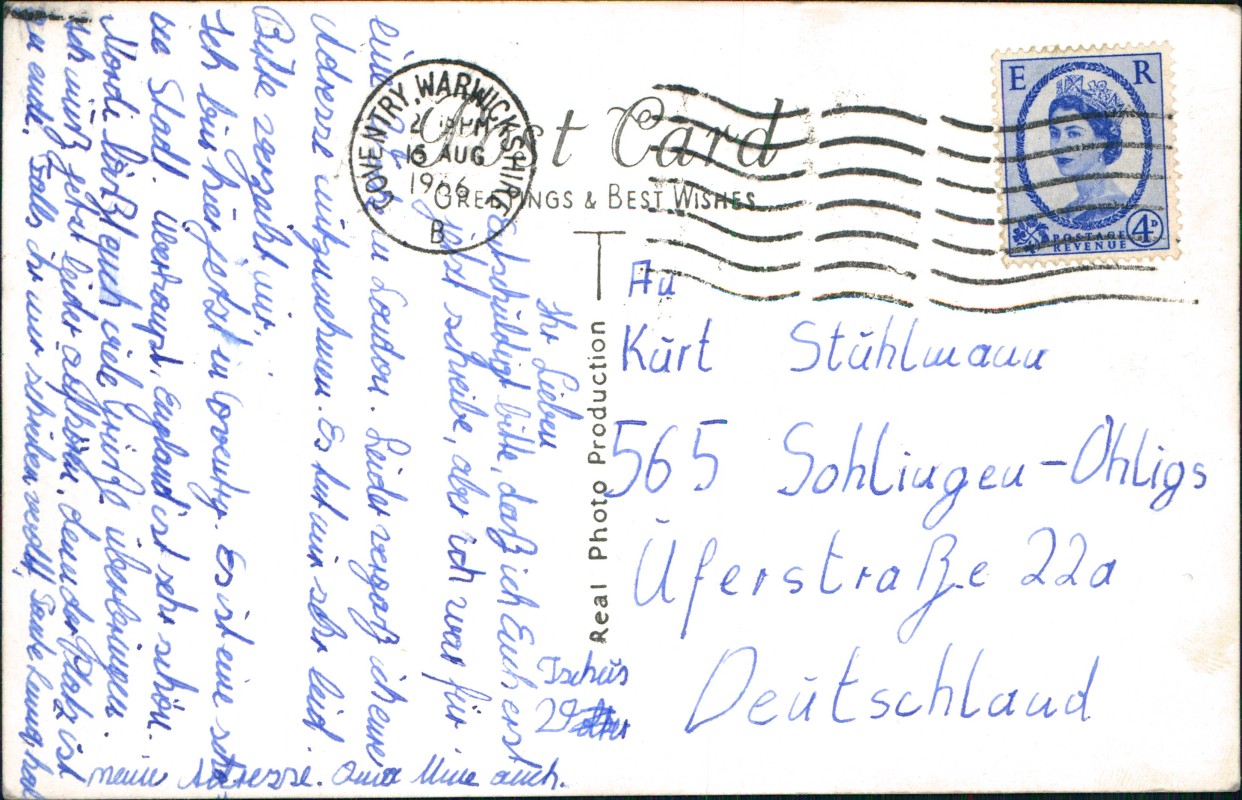 Post Card
GREETINGS & BEST WISHES
COVENTRY, WARWICKSHIRE
PM
AUG
1966
B
E R
POSTAGE
REVENUE
4D
Real Photo Production
An
Kurt Stühlmann
565 Sohlingen-Ohligs
Uferstraße 22a
Deutschland
Ihr Lieben
Entschuldigt bitte, daß ich Euch erst
jetzt schreibe, aber ich war für
eine in London. Leider vergaß ich eure
Adresse mitzunehmen. Es tut mir sehr leid.
Bitte verzeiht mir.
Ich bin hier jetzt in Coventry. Es ist eine schö
ne Stadt. Überhaupt, England ist sehr schön.
läßt euch viele Grüße überbringen.
Ich muß jetzt leider aufhören, denn der Platz ist
zu ende. Falls ihr mir schreiben wollt, Tante hat
meine Adresse. Oma Mine auch.
Tschüs